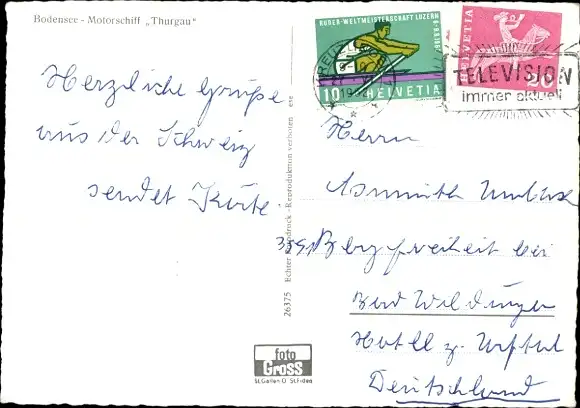 Bodensee - Motorschiff „Thurgau"
Herzliche Grüße
aus der Schweiz
sendet
26375 Echter Fotodruck - Reproduktion verboten
foto
Gross
St.Gallen O St.Fiden
RUDER-WELTMEISTERSCHAFT LUZERN
10 HELVETIA
HELVETIA
20
TELEVISION
immer aktuell
Herrn
Asmuth
Bergfreiheit bei
Bad Wildungen
Hotell z. Urftal
Deutschland